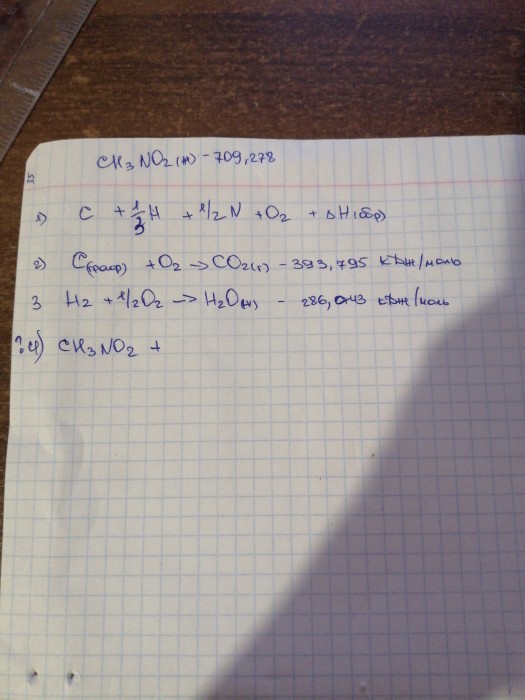 CH3NO2(ж) - 709,278
15
1) C + 1/3 H + 1/2 N + O2 + ΔH(обр)
2) C(граф) + O2 → CO2(г) - 393,795 кДж/моль
3 H2 + 1/2 O2 → H2O(ж) - 286,043 кДж/моль
? 4) CH3NO2 +